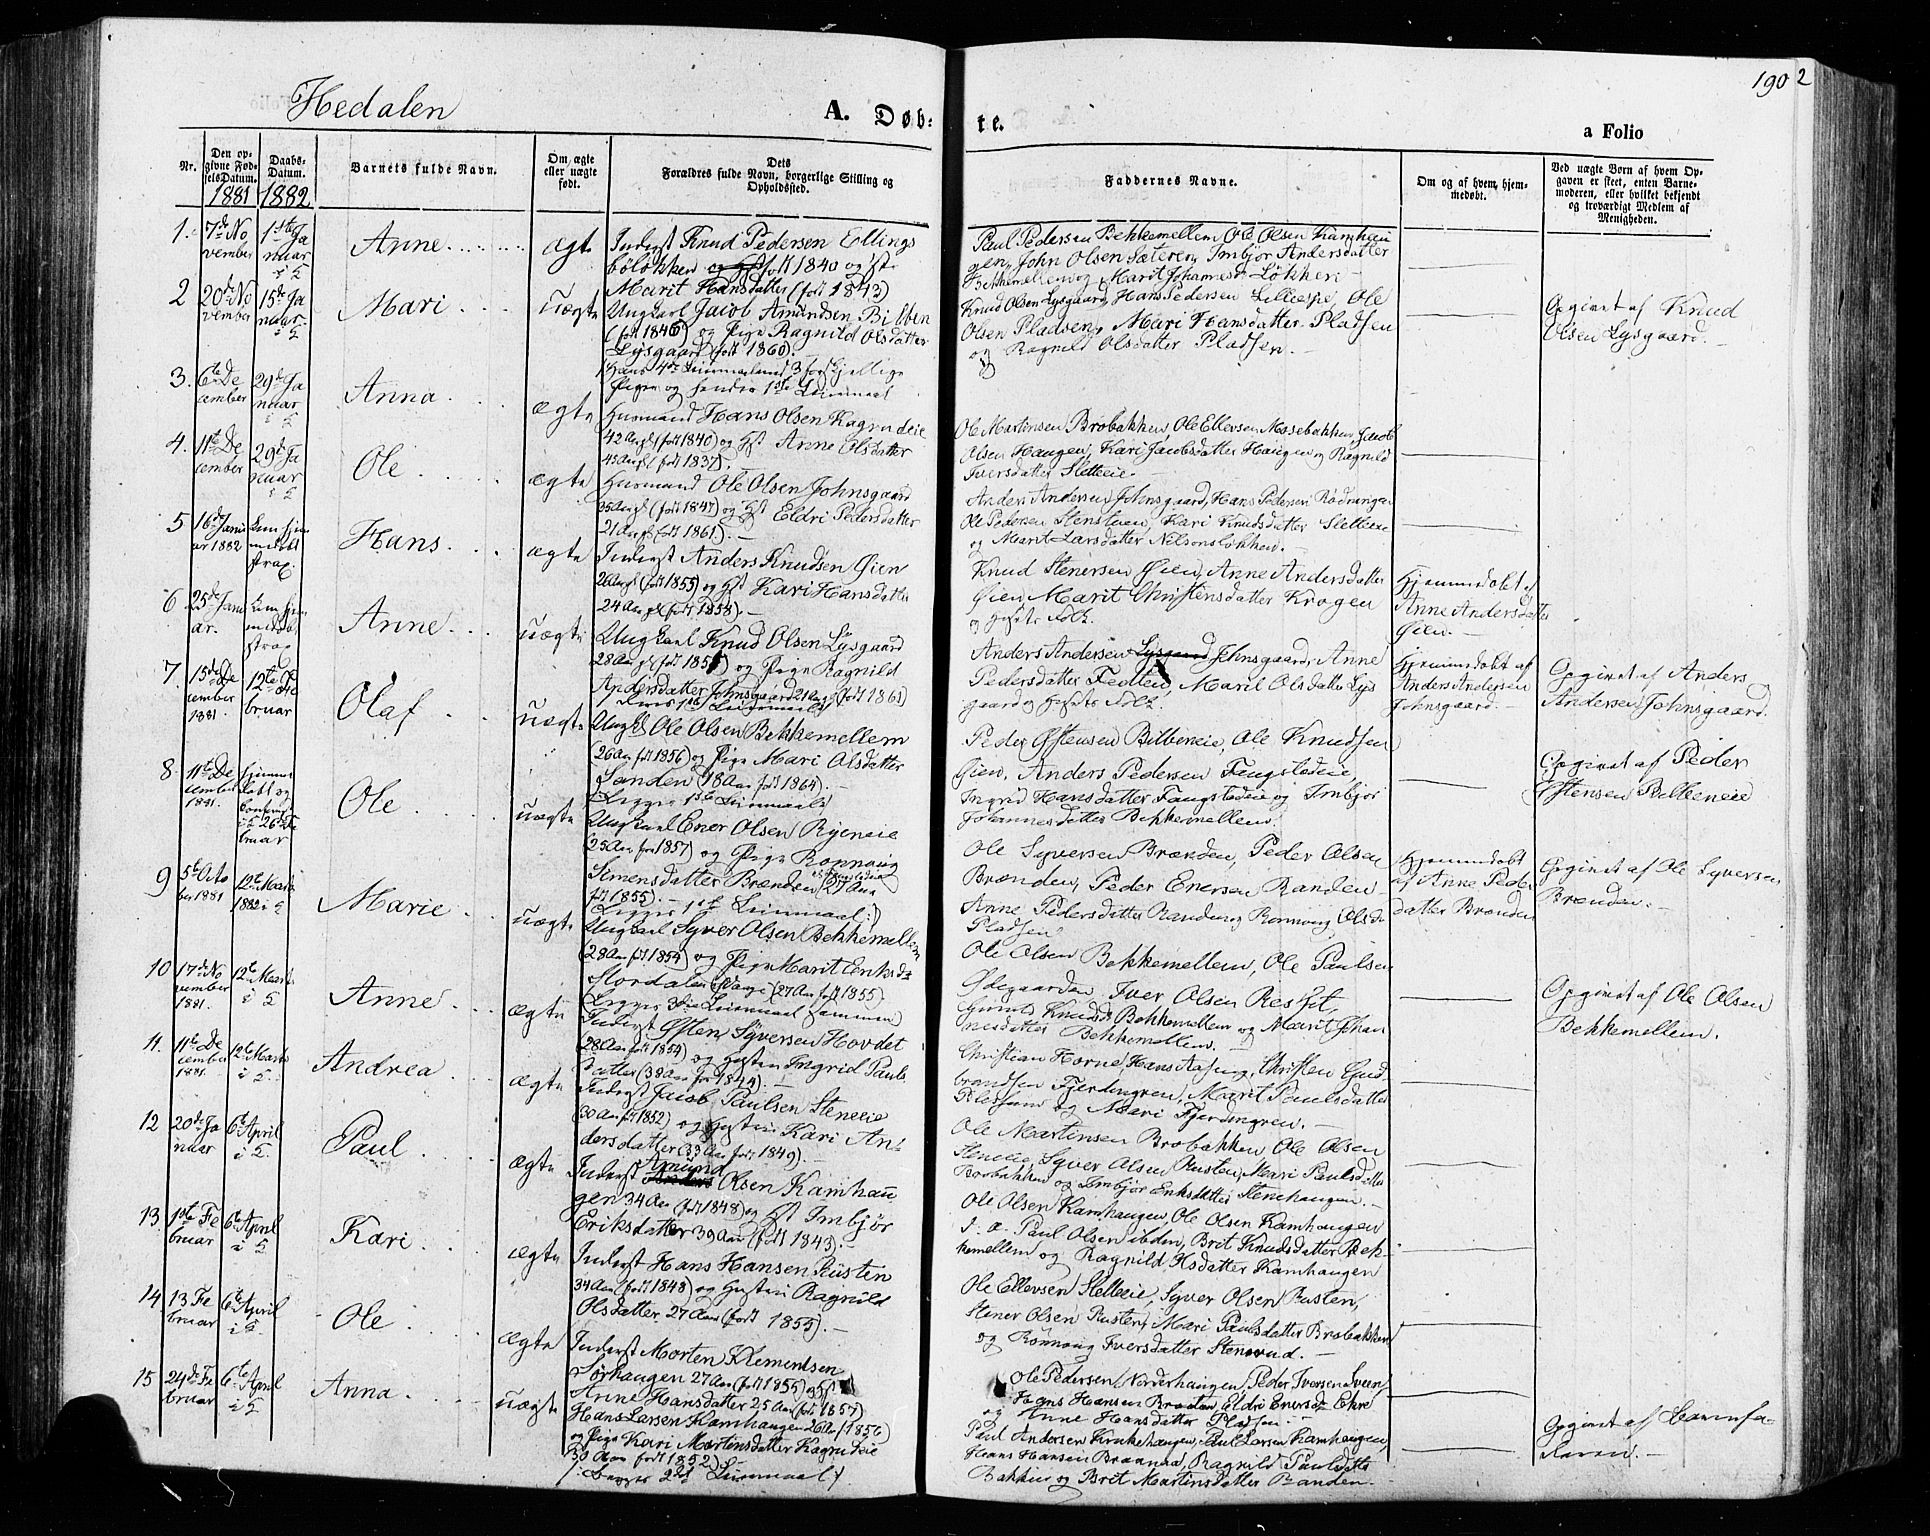 190 2
Hedalen
A. Døb: te.
a Folio
Nr.
Den op-
givne Fød-
selsDatum.
1881
Daabs-
Datum.
1882
Barnets fulde Navn.
Om ægte
eller uægte
født.
Dets
Forældres fulde Navn, borgerlige Stilling og
Opholdssted.
Faddernes Navne.
Om og af hvem hjem-
medøbt.
Ved uægte Børn af hvem Op-
gaven er skeet, enten Barne-
moderen, eller hvilket bekjendt
og troværdigt Medlem af
Menigheden.
1. 7de No
vember
1ste Ja
nuar
i K
Anne
ægte
Inderst Knud Pedersen Ellings
bøløkken født 1840 og Hst
Marit Hansdatter (født 1843)
Paul Pedersen Bekkemellem, Ole Olsen Kamhau
gen, John Olsen Sæteren, Imbjør Andersdatter
Bekkemellem og Marit Johannesd Løkken
2 20de No
vember
15de Ja
nuar
Mari
uægte
Ungkarl Jacob Amundsen Bilben
(født 1846) og Pige Ragnild Olsdatter
Lysgaard (født 1860).
Hans 4de Leiermaal med 3 forskjellige
Piger og hendes 1ste Leiermaal
Knud Olsen Lysgaard, Hans Pedersen Lilleeie, Ole
Olsen Pladsen, Mari Hansdatter Pladsen
og Ragnild Olsdatter Pladsen.
Opgivet af Knud
Olsen Lysgaard.
3. 6te De
cember
29de Ja
nuar
Anna
ægte
Husmand Hans Olsen Kagrudeie
42 Aar gl (født 1840) og Hst Anne Olsdatter
45 Aar gl (født 1837).
Ole Martinsen Brobakken, Ole Ellevsen Mosebakken, Jacob
Olsen Haugen, Kari Jacobsdatter Haugen og Ragnild
Iversdatter Sletteeie.
4. 11te De
cember
29de Ja
nuar
Ole
ægte
Husmand Ole Olsen Johnsgaard
35 Aar gl (født 1847) og Hst Eldri Pedersdatter
21 Aar gl (født 1861).
Anders Andersen Johnsgaard, Hans Pedersen Rødningen
Ole Pedersen Stensteien, Kari Knudsdatter Sletteeie
og Marit Larsdatter Nilsonsløkken.
5 16de Janu
ar 1882
Hans
ægte
Inderst Anders Knudsen Øien
26 Aar gl (født 1855) og Hst Kari Hansdatter
24 Aar gl (født 1858).
Knud Stenersen Øien, Anne Andersdatter
Øien Marit Christensdatter Krogen
Hjemmedøbt af
Anne Andersdatter
Øien.
6 25de Janu
ar.
Anne
uægte
Ungkarl Knud Olsen Lysgaard
28 Aar gl og Pige Ragnild
Andersdatter Johnsgaard 21 Aar gl (født 1861)
Anders Andersen Lysgaard Johnsgaard, Anne
Pedersdatter Fedtlen, Maril Olsdatter Lys
gaard og Husets Folk.
Hjemmedøbt af
Anders Andersen
Johnsgaard.
Opgivet af Anders
Andersen Johnsgaard.
7 15de De
cember
1881.
12te Fe
bruar
Olaf
uægte
Ungkl Ole Olsen Bekkemellem
(26 Aar født 1856) og Pige Mari Olsdatter
Sanden (18 Aar født 1864).
Begges 1ste Leiermaal
Peder Østensen Bilbeneie, Ole Knudsen
Øien, Anders Pedersen Fangstedeie,
Ingrid Hansdatter Fangstedeie og Imbjør
Johannesdatter Bekkemellem.
Opgivet af Peder
Østensen Bilbeneie
8 11te De
cember
1881.
26de Fe
bruar
Ole
uægte
Ungkarl Ener Olsen Ryeneie
(25 Aar født 1857) og Pige Ronnoug
Simensdatter Brænden (27 Aar
født 1855).
Begges 1ste Leiermaal
Ole Syversen Brænden, Peder Olsen
Brænden, Peder Enersen Randen
Anne Pedersdatter Randen og Ronnoug Olsdr
Pladsen
Hjemmedøbt
af Anne Peders
datter Brænden
Opgivet af Ole Syversen
Brænden.
9 5te Octo
ber 1881
12te Marts
1882 i K
Marie
uægte
Ungkarl Syver Olsen Bekkemellem
(28 Aar født 1854) og Pige Marit Eriksdr
Stordalen (27 Aar født 1855)
(Begges 3die Leiermaal sammen)
Ole Olsen Bekkemellem, Ole Paulsen
Ødegaarden, Iver Olsen Resset,
Gunild Knudsdr Bekkemellem og Marit Johan
nesdatter Bekkemellem.
Opgivet af Ole Olsen
Bekkemellem.
10 17de No
vember
1881.
12te Marts
i K
Anne
ægte
Inderst Østen Syversen Hovdet
(28 Aar født 1854) og Hustru Ingrid Pauls
datter (38 Aar født 1844).
Christian Horne, Hans Aasing, Christen Gud
brandsen Fjerdingren, Marit Paulsdatter
og Mari Fjerdingren.
11. 11te De
cember
1881.
12te Marts
i K.
Andrea
ægte
Inderst Jacob Paulsen Steneeie
(30 Aar født 1852) og Hustru Kari An-
dersdatter (33 Aar født 1849).
Ole Martinsen Brobakken Ole Olsen
Steneeie, Syver Olsen Rusten, Mari Paulsdatter
Brobakken og Imbjør Eriksdatter Stenehaugen.
12 20de Ja
nuar
6te April
i K.
Paul
ægte
Inderst Amund Olsen Kamhau
gen 34 Aar (født 1848) og Hst Imbjør
Eriksdatter 39 Aar (født 1843).
Ole Olsen Kamhaugen, Ole Olsen Kamhaugen
Paul Olsen ibden, Brit Knudsdatter Bek-
kemellem og Ragnild Olsdatter Kamhaugen
13. 1ste Fe
bruar
6te April
i K
Kari
ægte
Inderst Hans Hansen Rusten
34 Aar (født 1848) og Hustru Ragnild
Olsdatter 27 Aar (født 1855).
Ole Ellevsen Sletteeie, Syver Olsen Rusten,
Stener Olsen Rusten, Mari Paulsdatter Brobakken
og Rønnoug Iversdatter Stenerud.
14 13 Fe
bruar
6te April
i K.
Ole
ægte
Inderst Morten Klementsen
Sørhaugen 27 Aar (født 1855) og Hst
Anne Hansdatter 25 Aar (født 1857)
Ole Pedersen Nordrehaugen, Peder Iversen Sveen,
Hans Hansen Braaten, Eldri Enersdr Ehre
og Anne Hansdatter Pladsen.
15 24de Fe
bruar
6te April
i K
Anna
uægte
Hans Larsen Kamhaugen 26 Aar (1856)
og Pige Kari Martinsdatter Kagrudeie
30 Aar født 1852)
(: Begges 2det Leiermaal :)
Paul Andersen Krukehaugen, Paul Larsen Kamhaugen,
Hans Hansen Braaten, Ragnild Paulsdatter
Bakken og Brit Martinsdatter Randen.
Opgivet af Barnefa-
deren.